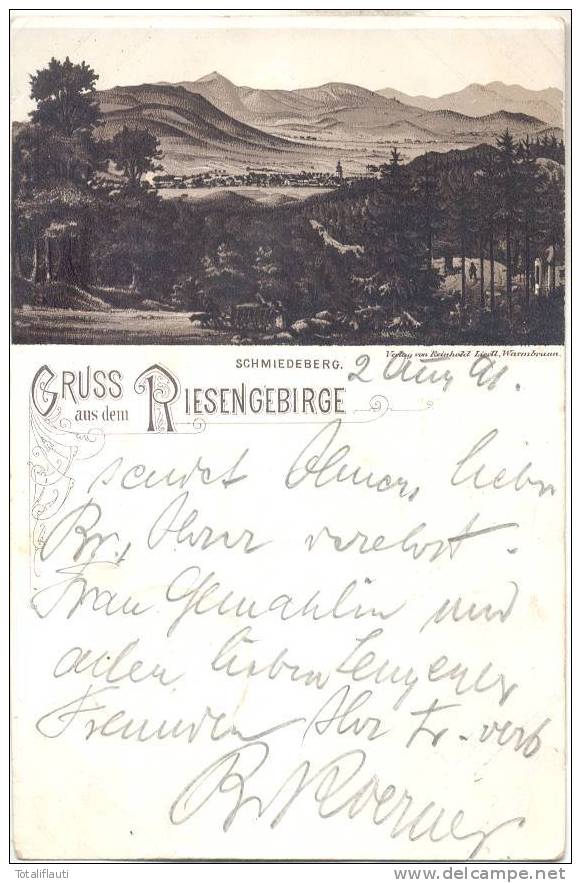 Verlag von Reinhold Liedl, Warmbrunn.
SCHMIEDEBERG.
GRUSS aus dem RIESENGEBIRGE
2 Aug 91.
sendet Ihnen, lieber
Br., Ihrer verehrt.
Frau Gemahlin und
allen lieben
Freunden Ihr tr. verb
Br. Koerner
Totaliflauti
www.delcampe.net